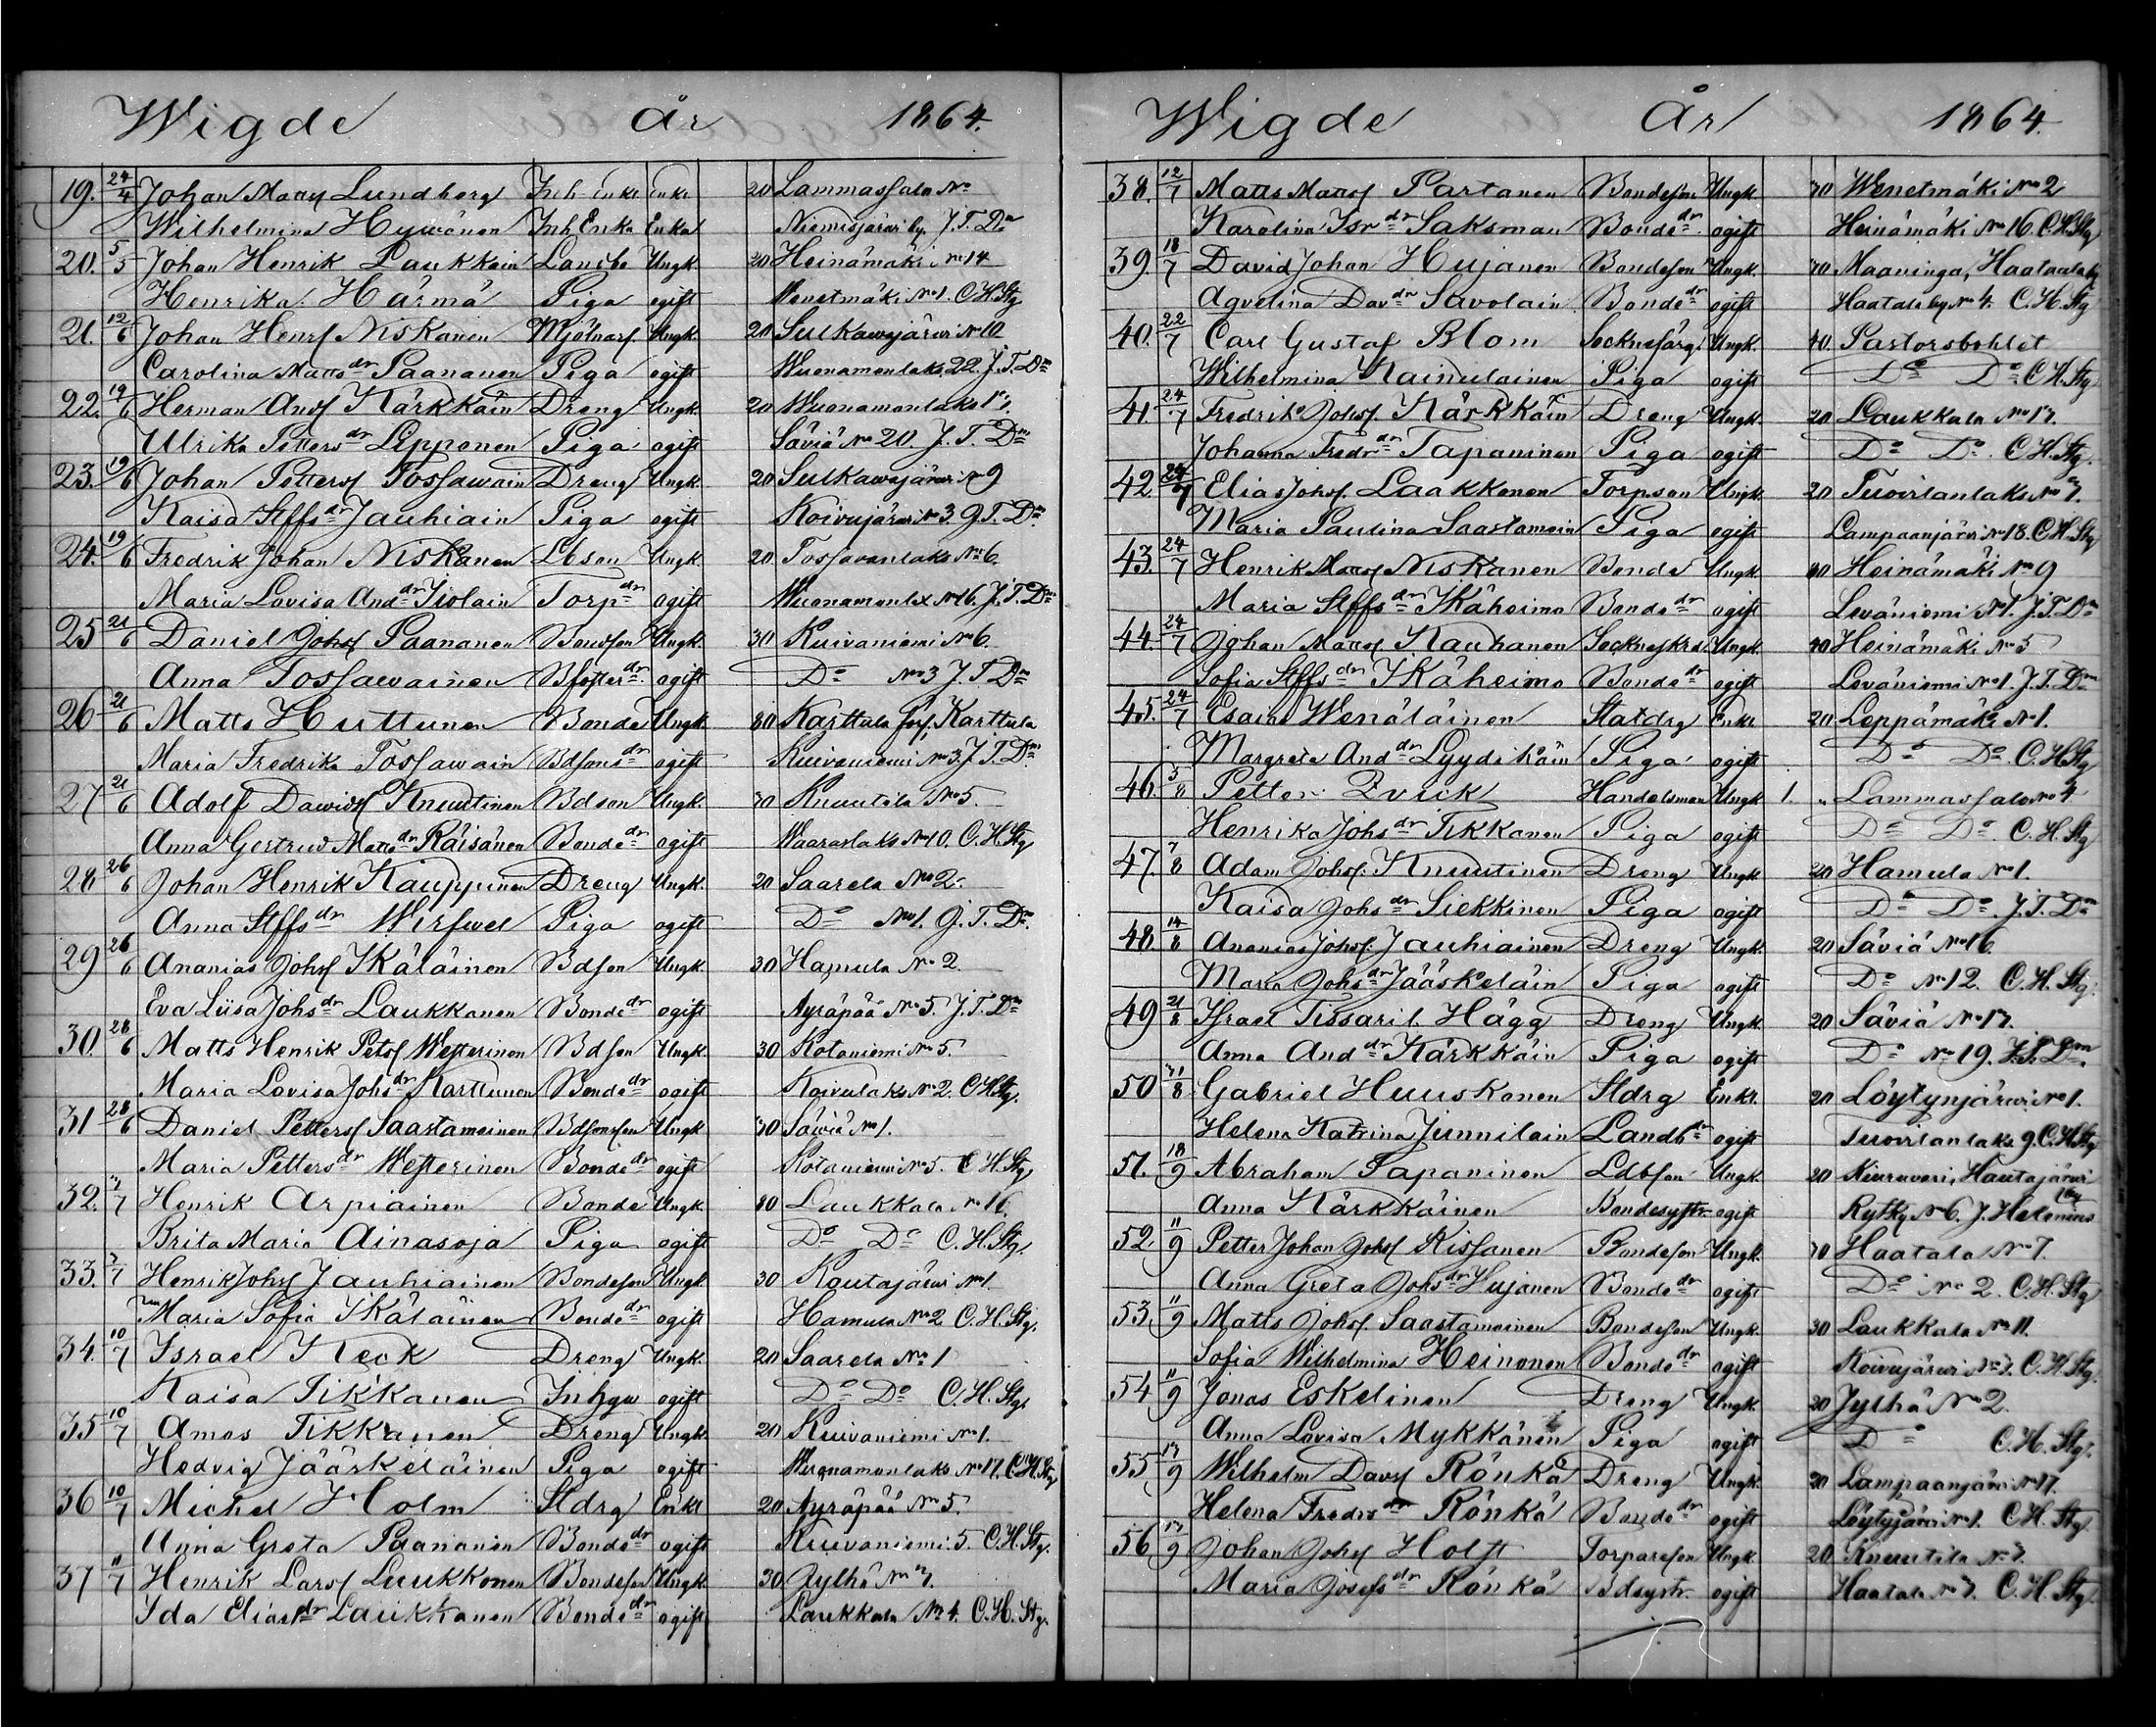 Wigde år 1864.
19. 24/4 Johan Maar Lundberg Inh Enkl. Enkl. 20 Lammassalo No
Wilhelmina Hyvönen Inh Enka Enka Niemisjärvi by. J. T. Dm
20. 5/5 Johan Henrik Laukkain Landbo Ungk. 20 Heinämäki No 14
Henrika Härmä Piga ogift Wenetmäki No 1. C. H. Stg
21. 12/6 Johan Henrs Niskanen Mjölnars. Ungk. 20 Sulkawajärwi No 10
Carolina Matts dr Paananen Piga ogift Wuonamonlaks 22. J. T. Dm
22. 19/6 Herman Ands Kärkkäin Dreng Ungk. 20 Wuonamonlaks 17.
Ulrika Petters dr Lepponen Piga ogift Säviä No 20. J. T. Dm
23. 19/6 Johan Petters Tossawain Dreng Ungk. 20 Sulkawajärwi No 9
Kaisa Stffs dr Jauhiain Piga ogift Koivujärwi No 3. J. T. Dm
24. 19/6 Fredrik Johan Niskanen Lbson Ungk. 20 Tossavanlaks No 6.
Maria Lovisa And dr Tiolain Torp dr ogift Wuonamonlx No 16. J. T. Dm
25 21/6 Daniel Johs Paananen Bondson Ungk. 30 Kuivaniemi No 6.
Anna Tossawainen Bfoster dr ogift Do No 3 J. T. Dm
26 21/6 Matts Huttunen Bonde Ungk. 80 Karttula sos. Karttula
Maria Fredrika Tossawain Bdsons dr ogift Kuivaniemi No 3 J. T. Dm
27 21/6 Adolf Dawids Knuutinen Bdson Ungk. 30 Knuutila No 5.
Anna Gertrud Matts dr Räisänen Bonde dr ogift Waaraslaks No 10. C. H. Stg
28 26/6 Johan Henrik Kauppinen Dreng Ungk. 20 Saarela No 2.
Anna Stffs dr Wirfwel Piga ogift Do No 1. J. T. Dm
29 26/6 Ananias Johs Ikäläinen Bdson Ungk. 30 Hamula No 2.
Eva Liisa Johs dr Laukkanen Bonde dr ogift Äyräpää No 5. J. T. Dm
30. 26/6 Matts Henrik Pets Westerinen Bdson Ungk. 30 Kotaniemi No 5.
Maria Lovisa Johs dr Karttunen Bonde dr ogift Koivulaks No 2. C. H. Stg.
31 28/6 Daniel Petters Saastamoinen Bdsonson Ungk 30 Säwiä No 1.
Maria Petters dr Westerinen Bonde dr ogift Kotaniemi No 5. C. H. Stg
32. 3/7 Henrik Arpiainen Bonde Ungk. 80 Laukkala No 16.
Brita Maria Ainasoja Piga ogift Do Do C. H. Stg.
33. 3/7 Henrik Johs Jauhiainen Bondeson Ungk. 30 Koutajärwi No 1.
Maria Sofia Ikäläinen Bonde dr ogift Hamula No 2 C. H. Stg.
34. 10/7 Israel Keck Dreng Ungk. 20 Saarela No 1
Kaisa Tikkanen Inhgn ogift Do Do C. H. Stg.
35 10/7 Amos Tikkanen Dreng Ungk. 20 Kuivaniemi No 1.
Hedvig Jääskeläinen Piga ogift Wuonamonlaks No 17. C. H. Stg
36 10/7 Michel Holm Stdrg Enkl 20 Äyräpää No 5.
Anna Greta Paananen Bonde dr ogift Kuivaniemi 5. C. H. Stg.
37 11/7 Henrik Lars Luukkonen Bondeson Ungk. 30 Jylhä No 7.
Ida Elias dr Laukkanen Bonde dr ogift Laukkala No 4. C. H. Stg.
Wigde År 1864.
38. 12/7 Matts Matts Partanen Bondeson Ungk. 30 Wenetmäki No 2
Karolina Isr dr Saksman Bonde dr ogift Heinämäki No 16. C. H. Stg
39. 18/7 David Johan Hujanen Bondeson Ungk. 30 Maaninga, Haatala by
Agvelina Dav dr Savolain Bonde dr ogift Haatala by No 4. C. H. Stg
40. 22/7 Carl Gustaf Blom Socknefärg. Ungk. 40. Pastorsbohlet
Wilhelmina Kainulainen Piga ogift Do Do C. H. Stg
41. 24/7 Fredrik Johs. Kärkkäin Dreng Ungk. 20 Laukkala No 17.
Johanna Fredr dr Tapaninen Piga ogift Do Do. C. H. Stg.
42 24/7 Elias Johs. Laakkonen Torpson Ungk. 20 Tuovilanlaks No 7.
Maria Paulina Saastamoin Piga ogift Lampaanjärvi No 18. C. H. Stg
43. 24/7 Henrik Matts Niskanen Bonde Ungk. 80 Heinämäki No 9
Maria Stffs dr Ikäheimo Bonde dr ogift Leväniemi No 1. J. T. Dm
44. 24/7 Johan Matts Kauhanen Socknskrd. Ungk. 40 Heinämäki No 5
Sofia Stffs dr Ikäheimo Bonde dr ogift Leväniemi No 1. J. T. Dm
45. 24/7 Esaias Wenäläinen Statdrg Enkl. 20 Leppämäki No 1.
Margreta And dr Lyydikäin Piga ogift Do Do. C. H. Stg
46. 5/8 Petter Zvick Handelsman Ungk 1. „ Lammassalo No 4
Henrika Johs dr Tikkanen Piga ogift Do Do C. H. Stg
47. 7/8 Adam Johs. Knuutinen Dreng Ungk. 20 Hamula No 1.
Kaisa Johs dr Siekkinen Piga ogift Do Do. J. T. Dm
48 14/8 Ananias Johs. Jauhiainen Dreng Ungk. 20 Säviä No 16.
Maria Johs dr Jääskeläin Piga ogift Do No 12. C. H. Stg.
49 21/8 Israel Tissaril. Hägg Dreng Ungk. 20 Säviä No 17.
Anna And dr Kärkkäin Piga ogift Do No 19. J. T. Dm.
50 31/8 Gabriel Huuskonen Stdrg Enkl. 20 Löytynjärwi No 1.
Helena Katrina Junnilain Landb dr ogift Tuovilanlaks 9. C. H. Stg
51. 18/9 Abraham Tapaninen Ldbson Ungk. 20 Kiuruvesi, Hautajärwi by
Anna Kärkkäinen Bondesystr. ogift Rytky No 6. J. Helenius
52. 11/9 Petter Johan Johs Kissanen Bondeson Ungk. 30 Haatala No 7.
Anna Greta Johs dr Hujanen Bonde dr ogift Do No 2. C. H. Stg
53. 11/9 Matts Johs. Saastamoinen Bondeson Ungk. 30 Laukkala No 11.
Sofia Wilhelmina Heinonen Bonde dr ogift Koivujärwi No 7. C. H. Stg.
54 11/9 Jonas Eskelinen Dreng Ungk. 20 Jylhä No 2.
Anna Lovisa Mykkänen Piga ogift Do C. H. Stg.
55 17/9 Wilhelm Davs Rönkä Dreng Ungk. 20 Lampaanjärvi No 17.
Helena Fredrs dr Rönkä Bonde dr ogift Löytyjärvi No 1. C. H. Stg.
56 17/9 Johan Johs Holst Torpareson Ungk. 20. Knuutila No 7.
Maria Josefs dr Rönkä Bdsystr. ogift Haatala No 7. C. H. Stg.